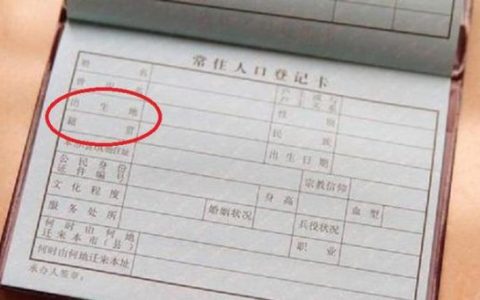 常住人口登记卡
姓名
曾用名 性别
出生地 民族
籍贯 出生日期
本市(县)其他住址 宗教信仰
公民身份证件编号 身高 血型
文化程度 婚姻状况 兵役状况
服务处所 职业
何时由何地迁来本市(县)
何时由何地迁来本址
承办人签章: